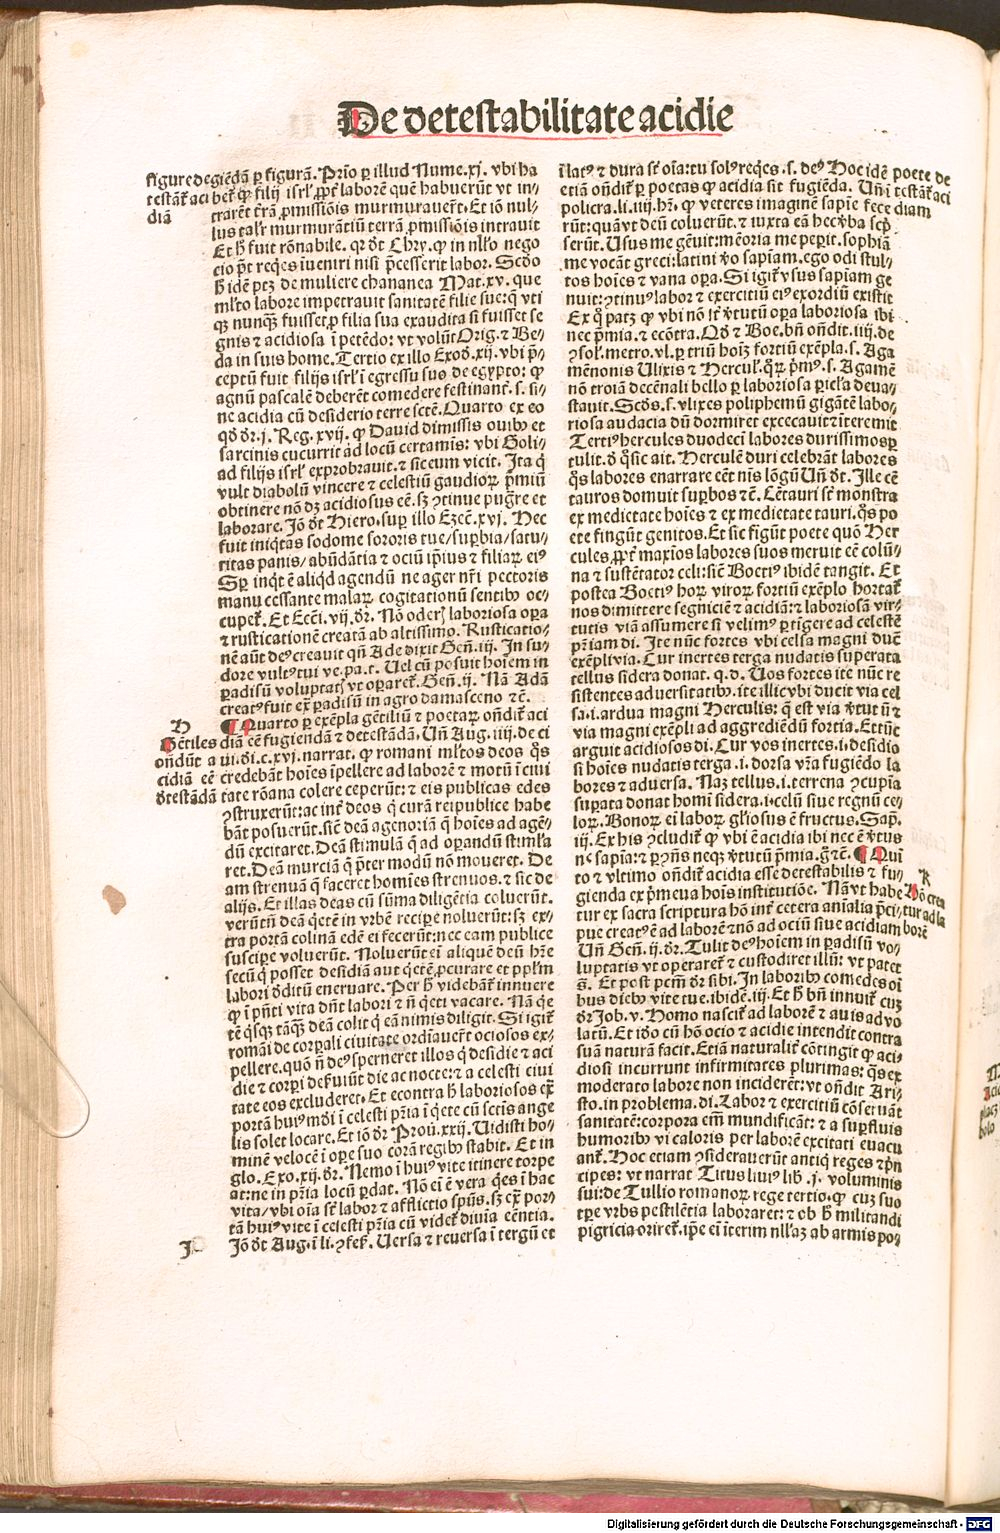 De detestabilitate acidie
figure de
testãt̃ aci
diã
giẽdã ꝑ figurã. Prĩo ꝑ illud Nume.xj. vbi ha
bet̃ ꝙ filij isrł ꝓpt̃ laborẽ quẽ habuerũt vt in⸗
trarẽt t̃rã ꝓmissiõis murmurauer̃t. Et iõ nul⸗
lus talr̃ murmurãtiũ terrã ꝓmissiõis intrauit
Et h̃ fuit rõnabile. qr õt Chry. ꝙ in nllo nego
cio põt reqẽs iueniri nisi p̃cesserit labor. Scðo
h̃ idẽ ptꝫ de muliere chananea Mat.xv. que
mlto labore impetrauit sanitatẽ filie sue: q̃ vti
qꝫ nunqꝫ fuisset ꝓ filia sua exaudita si fuisset se
gnis ⁊ acidiosa ĩ petẽdo: vt volũt Orig. ⁊ Be⸗
da in suis home. Tertio ex illo Exoð.xij. vbi p̃⸗
ceptũ fuit filijs isrł ĩ egressu suo de egypto: ꝙ
agnũ pascalẽ deberẽt comedere festinant̃. s. si⸗
ne acidia cũ desiderio terre sctẽ. Quarto ex eo
qð ðr.j. Reg. xvij. ꝙ Dauid dimissis ouibꝰ et
sarcinis cucurrit ad locũ certamĩs: vbi Goli⸗
ad filijs isrł exprobrauit. ⁊ sic eum vicit. Ita q̃
vult diabolũ vincere ⁊ celestiũ gaudioꝝ p̃miũ
obtinere nõ dꝫ acidiosus eẽ. sꝫ ꝯtinue pug̃re et
laborare. Jõ ðt Hiero. suꝑ illo Ezeẽ.xvj. Hec
fuit iniqtas sodome sororis tue/ suꝑbia/ satu⸗
ritas panis/ abũdãtia ⁊ ociũ ip̃ius ⁊ filiaꝝ eiꝰ
Sꝑ inqt ẽ aliqd agendũ ne ager nr̃i pectoris
manu cessante malaꝝ cogitationũ sentibꝰ oc⸗
cupet̃. Et Ecc̃i. vij. ðr. Nõ oderꝭ laboriosa oꝑa
⁊ rusticationẽ creatã ab altissimo. Rusticatio⸗
nẽ aũt deꝰ creauit qñ Ade dixit Geñ.iij. In su⸗
dore vultꝰ tui ve.pa.t. Uel cũ posuit hoĩem in
ꝑadisũ voluptatꝭ vt oꝑaret̃. Geñ. ij. Nã Adã
creatꝰ fuit ex̃ ꝑadisũ in agro damasceno ⁊c̃.
H
Gẽtiles
onðũt a
cidiã eẽ
ðtestãdã
¶ Quarto ꝑ exẽpla gẽtiliũ ⁊ poetaꝝ onðit̃ aci
diã eẽ fugiendã ⁊ detestãdã. Uñ Aug. iiij. de ci
ui. ði. c. xvj. narrat. ꝙ romani mltos deos q̃s
credebãt hoĩes ĩpellere ad laborẽ ⁊ motũ ĩ ciui
tate rõana colere ceperũt: ⁊ eis publicas edes
ꝯstruxerũt: ac int̃ deos q̃ curã reipublice habe
bãt posuerũt. sic̃ deã agenoriã q̃ hoĩes ad agẽ⸗
dũ excitaret. Deã stimulã q̃ ad oꝑandũ stimla
ret. Deã murciã q̃ p̃ter modũ nõ moueret. De
am strenuã q̃ faceret homĩes strenuos. ⁊ sic de
alijs. Et illas deas cũ sũma diligẽtia coluerũt.
verũtñ deã q̃etẽ in vrbẽ reciꝑe noluerũt: sꝫ ex⸗
tra portã colinã edẽ ei fecerũt: nec eam publice
susciꝑe voluerũt. Noluerũt ei aliquẽ deũ hr̃e
secũ q̃ posset desidiã aut q̃etẽ ꝓcurare et pp̃lm
labori ðditũ eneruare. Per h̃ videbãt̃ innuere
ꝙ ĩ pñti vita dñt labori ⁊ ñ q̃eti vacare. Nã q̃e
tẽ q̃sqꝫ tãqꝫ deã colit q̃ eã nimis diligit. Si igit̃
romãi de corꝑali ciuitate ordĩauer̃t ociosos ex⸗
pellere. quõ ñ deꝰ sperneret illos q̃ desidie ⁊ aci
die ⁊ corpi deẽuiũt die ac nocte: ⁊ a celesti ciui
tate eos excluderet. Et econtra h̃ laboriosos ex̃
portã huiꝰ mõi ĩ celesti pr̃ia ĩ q̃ete cũ sctis ange
lis solet locare. Et iõ ðr Proũ.xxij. Uidisti ho⸗
minẽ velocẽ ĩ oꝑe suo corã regibꝰ stabit. Et in
glo. Exo.xij. ðr. Nemo ĩ huiꝰ vite itinere torpe
at: ne in pr̃ia locũ ꝑdat. Nõ ei ẽ vera q̃es ĩ hac
vita/ vbi oĩa st̃ labor ⁊ afflictio spũs. sꝫ ex̃ por⸗
tã huiꝰ vite ĩ celesti pr̃ia cũ videt̃ diuĩa eẽntia.
J
Jõ ðt Aug. ĩ li. ꝯfeſ. Uersa ⁊ reuersa ĩ tergũ et
ĩ latꝰ ⁊ dura st̃ oĩa: tu solꝰ reqẽs. s. deꝰ Hoc idẽ
etiã onðit̃ ꝑ poetas ꝙ acidia sit fugiẽda. Uñ ĩ
policra. li. iiij. hr̃. ꝙ veteres imaginẽ sapiẽ fece
rũt: quã vt deũ coluerũt. ⁊ iuxta eã hec v̾ba sc̃p
serũt. Usus me g̃euit: mẽoria me peꝑit. sophiã
me vocãt greci: latini v̾o sapiam. ego odi stul⸗
tos hoĩes ⁊ vana oꝑa. Si igit̃ vsus sapiam ge
nuit: ꝯtinuꝰ labor ⁊ exercitiũ eiꝰ exordiũ existit
Ex q̃ patꝫ ꝙ vbi nõ st̃ v̾tutũ oꝑa laboriosa ibi
nec p̃mia. ⁊ ecõtra. Qð ⁊ Boe. bñ onðit. iiij. de
ꝯsoł. metro. vl. ꝑ triũ hoĩꝫ fortiũ exẽpla. s. Aga
mẽnonis Ulixis ⁊ Herculꝭ. q̃ꝝ p̃mꝰ. s. Agamẽ
nõ troiã decẽnali bello ꝑ laboriosa ꝑicła deua⸗
stauit. Scðs. s. vlixes poliphemũ gigãtẽ labo⸗
riosa audacia dũ dormiret execcauit ⁊ ĩteremit
Tertiꝰ hercules duodeci labores durissimos ꝑ
tulit. ð q̃ sic ait. Herculẽ duri celebrãt labores
q̃s labores enarrare eẽt nĩs lõgũ Uñ ðt. Ille cẽ
tauros domuit suꝑbos ⁊c̃. Cẽtauri st̃ monstra
ex medietate hoĩes ⁊ ex medietate tauri. q̃s po
ete fingũt genitos. Et sic fĩgũt poete quõ Her
cules ꝓpt̃ maxĩos labores suos meruit eẽ colũ⸗
na ⁊ sustẽtator celi: sic̃ Boetiꝰ ibidẽ tangit. Et
postea Boetiꝰ hoꝝ viroꝝ fortiũ exẽplo hortat̃
nos dimittere segniciẽ ⁊ acidiã: ⁊ laboriosã vir⸗
tutis viã assumere si velimꝰ ꝑtĩgere ad celestẽ
pr̃iam di. Ite nũc fortes vbi celsa magni ducẽ
exẽpli via. Cur inertes terga nudatis superata
tellus sidera donat. q.d. Uos fortes ite nũc re
sistentes aduersitatibꝰ. ite illic vbi ducit via cel
sa. i. ardua magni Herculis: q̃ est via v̾tutũ ⁊
via magni exẽpli ad aggrediẽdũ fortia. Et tũc
arguit acidiosos di. Cur vos inertes. i. desidio
si hoĩes nudatis terga. i. dorsa vr̃a fugiẽdo la
bores ⁊ aduersa. Naꝫ tellus. i. terrena ꝯcupĩa
suꝑata donat homĩ sidera. i. celũ siue regnũ ce⸗
loꝝ. Bonoꝝ ei laboꝝ glĩosus ẽ fructus. Sap.
iij. Ex his ꝯcludit̃ ꝙ vbi ẽ acidia ibi nec ẽ v̾tus
nec sapĩa: ⁊ ꝑ ꝯñs neqꝫ v̾tutũ p̃mia. g̃ ⁊c̃. ¶ Qui
to ⁊ vltimo onðit̃ acidia esse detestabilis ⁊ fu⸗
gienda ex p̃meua hoĩs institutiõe. Nã vt habe
tur ex sacra scriptura hõ int̃ cetera anĩalia p̃ci⸗
pue creatꝰ ẽ ad laborẽ ⁊ nõ ad ociũ siue acidiam
Uñ Geñ. ij. ðr. Tulit deꝰ hoĩem in ꝑadisũ vo⸗
luptatis vt operaret̃ ⁊ custodiret illũ: vt patet
g̃. Et post pc̃m ðr sibi. In laboribꝰ comedes oĩ
bus diebꝰ vite tue. ibidẽ. iij. Et h̃ bñ innuit̃ cuꝫ
ðr Job. v. Homo nascit̃ ad laborẽ ⁊ auis ad vo
latũ. Et iðo cũ hõ ocio ⁊ acidie intendit contra
suã naturã facit. Etiã naturalit̃ cõtingit ꝙ aci⸗
diosi incurrunt infirmitates plurimas: q̃s ex
moderato labore non inciderẽt: vt onðit Ari⸗
sto. in problema. di. Labor ⁊ exercitiũ cõseruãt
sanitatẽ: corpora em̃ mundificãt: ⁊ a suꝑfluis
humoribꝰ vi caloris per laborẽ excitati euacu
ant̃. Hoc etiam ꝯsiderauerũt antiq̃ reges ⁊ p̃n
cipes: vt narrat Titus liuiꝰ lib̃. j. voluminis
sui: de Tullio romanoꝝ rege tertio. ꝙ cuꝫ suo
tꝑe vrbs pestilẽtia laboraret: ⁊ ob h̃ militandi
pigricia oriret̃. ip̃e ei ĩterim nllaꝫ ab armis po⸗
poete de
testãt̃ aci
diam
K
Hõ crea
tur ad la
borẽ
Digitalisierung gefördert durch die Deutsche Forschungsgemeinschaft - DFG